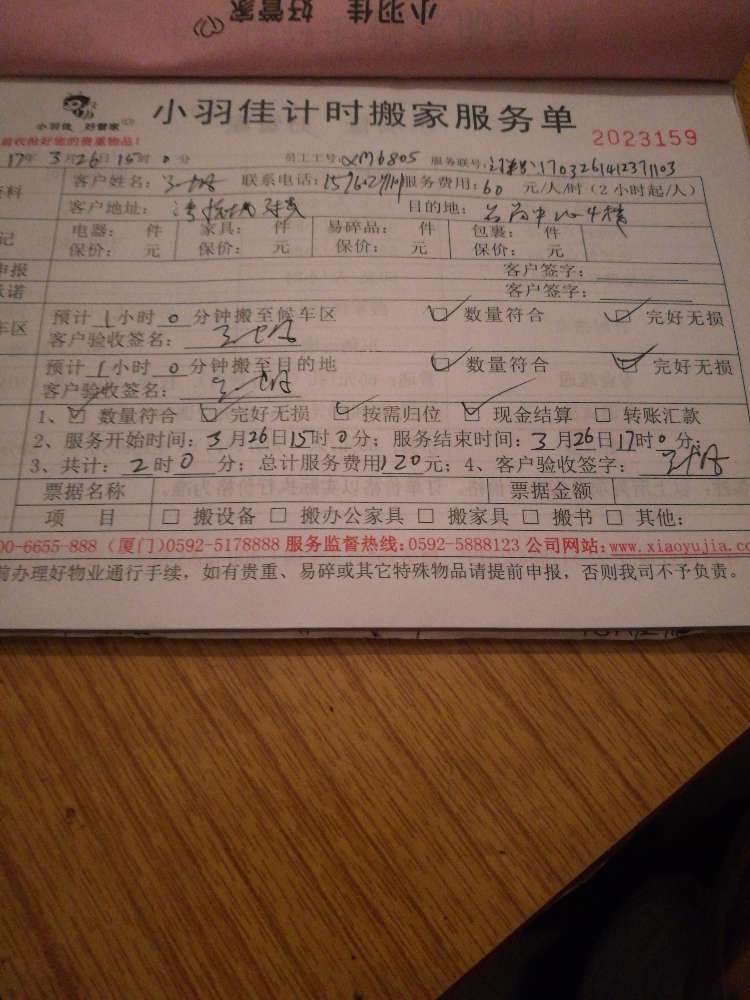 小羽佳 好管家
小羽佳 好管家
小羽佳计时搬家服务单
2023159
前收拾好您的贵重物品!
17年3月26日15时0分 员工工号:XM6805 服务联号: 170326141237103
资料 客户姓名: 联系电话: 服务费用:60 元/人/时(2小时起/人)
客户地址: 目的地: 中心4楼
记 电器: 件 家具: 件 易碎品: 件 包裹: 件
保价: 元 保价: 元 保价: 元 保价: 元
申报 客户签字:
承诺 客户签字:
车区 预计1小时0分钟搬至候车区 数量符合 完好无损
客户验收签名:
预计1小时0分钟搬至目的地 数量符合 完好无损
客户验收签名:
1、数量符合 完好无损 按需归位 现金结算 转账汇款
2、服务开始时间:3月26日15时0分;服务结束时间:3月26日17时0分;
3、共计:2时0分;总计服务费用120元;4、客户验收签字:
票据名称 票据金额
项 目 搬设备 搬办公家具 搬家具 搬书 其他:
00-6655-888 (厦门)0592-5178888 服务监督热线:0592-5888123 公司网站:www.xiaoyujia.co
前办理好物业通行手续,如有贵重、易碎或其它特殊物品请提前申报,否则我司不予负责。